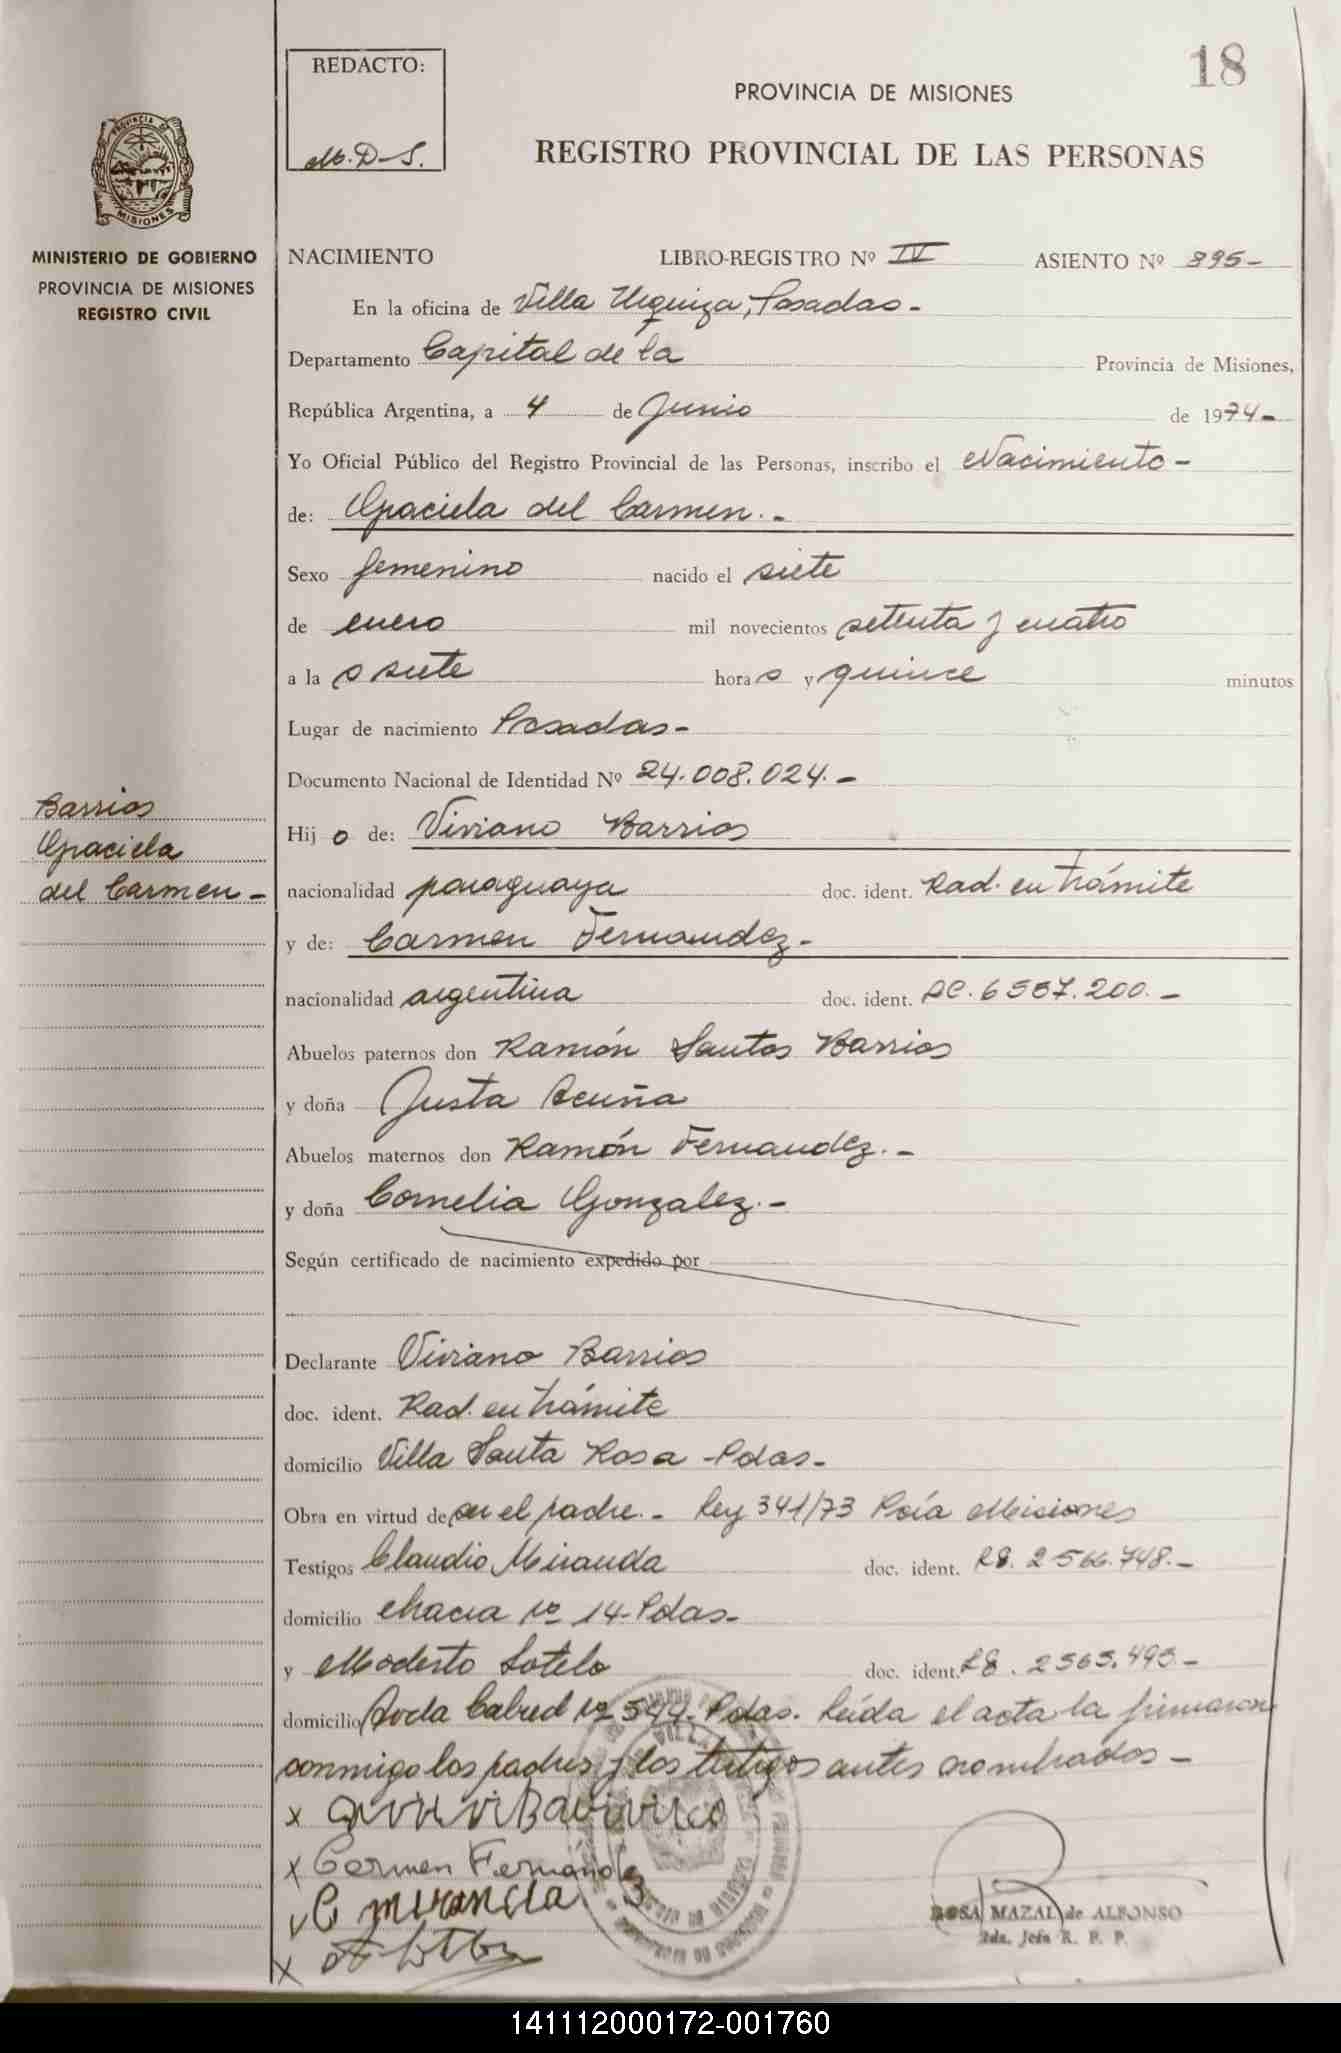 18
REDACTO:
M.D-S.
PROVINCIA DE MISIONES
REGISTRO PROVINCIAL DE LAS PERSONAS
PROVINCIA DE
MISIONES
MINISTERIO DE GOBIERNO
PROVINCIA DE MISIONES
REGISTRO CIVIL
NACIMIENTO LIBRO-REGISTRO Nº IV ASIENTO Nº 895-
En la oficina de Villa Urquiza, Posadas-
Departamento Capital de la Provincia de Misiones,
República Argentina, a 4 de Junio de 1974-
Yo Oficial Público del Registro Provincial de las Personas, inscribo el Nacimiento-
de: Graciela del Carmen.-
Sexo femenino nacido el siete
de enero mil novecientos setenta y cuatro
a la s siete hora s y quince minutos
Lugar de nacimiento Posadas-
Documento Nacional de Identidad Nº 24.008.024.-
Barrios
Graciela
del Carmen-
Hij o de: Viviano Barrios
nacionalidad paraguaya doc. ident. Rad. en trámite
y de: Carmen Fernandez-
nacionalidad argentina doc. ident. LC. 6557.200.-
Abuelos paternos don Ramón Santos Barrios
y doña Justa Acuña
Abuelos maternos don Ramón Fernandez.-
y doña Cornelia Gonzalez.-
Según certificado de nacimiento expedido por
Declarante Viviano Barrios
doc. ident. Rad. en trámite
domicilio Villa Santa Rosa -Pdas-
Obra en virtud de ser el padre.- Ley 341/73 Pcía Misiones
Testigos Claudio Miranda doc. ident. 28. 2566.748.-
domicilio Chacra Nº 14-Pdas-
y Modesto Sotelo doc. ident. 28. 2565.493-
domicilio Avda Cabred Nº 544- Pdas. Leída el acta la firmaron
conmigo los padres y los testigos antes nombrados-
x
x Carmen Fernandez
C miranda
x
ROSA MAZAL de ALFONSO
2da. Jefa R. P. P.
141112000172-001760